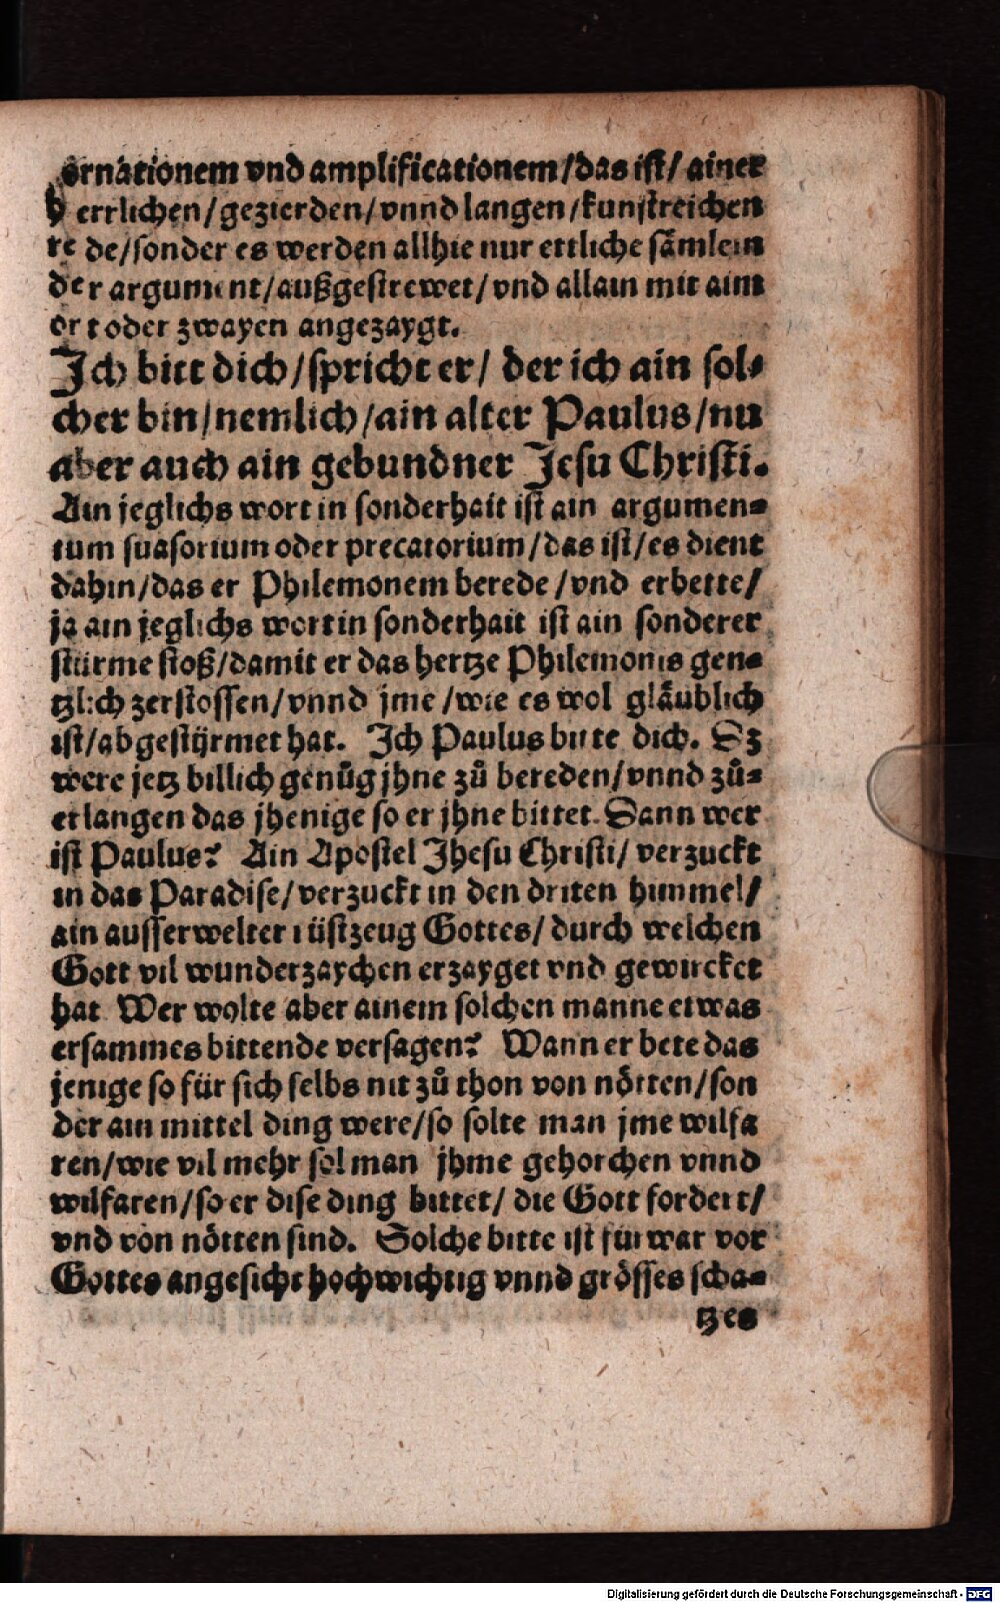 ornationem vnd amplificationem/das ist/ ainer
herrlichen/gezierden/vnnd langen/kunstreichen
rede/sonder es werden allhie nur ettliche sämlein
der argument/außgestrewet/vnd allain mit aim
ort oder zwayen angezaygt.
Ich bitt dich/spricht er/ der ich ain sol⸗
cher bin/nemlich/ain alter Paulus/nu
aber auch ain gebundner Jesu Christi.
Ain jeglichs wort in sonderhait ist ain argumen⸗
tum suasorium oder precatorium/das ist/es dient
dahin/das er Philemonem berede/vnd erbette/
ja ain jeglichs wort in sonderhait ist ain sonderer
stürme stoß/damit er das hertze Philemonis gen⸗
tzlich zerstossen/vnnd jme/wie es wol gläublich
ist/abgestÿrmet hat. Ich Paulus bitte dich. Dz
were jetz billich genůg jhne zů bereden/vnnd zů⸗
erlangen das jhenige so er jhne bittet. Dann wer
ist Paulus? Ain Apostel Jhesu Christi/ verzuckt
in das Paradise/verzuckt in den driten himmel/
ain ausserwelter rüstzeug Gottes/ durch welchen
Gott vil wunderzaychen erzayget vnd gewircket
hat Wer wolte aber ainem solchen manne etwas
ersammes bittende versagen? Wann er bete das
jenige so für sich selbs nit zů thon von nötten/son
der ain mittel ding were/so solte man jme wilfa
ren/wie vil mehr sol man jhme gehorchen vnnd
wilfaren/so er dise ding bittet/ die Gott fordert/
vnd von nötten sind. Solche bitte ist fürwar vor
Gottes angesicht hochwichtig vnnd grösses scha⸗
tzes
Digitalisierung gefördert durch die Deutsche Forschungsgemeinschaft - DFG